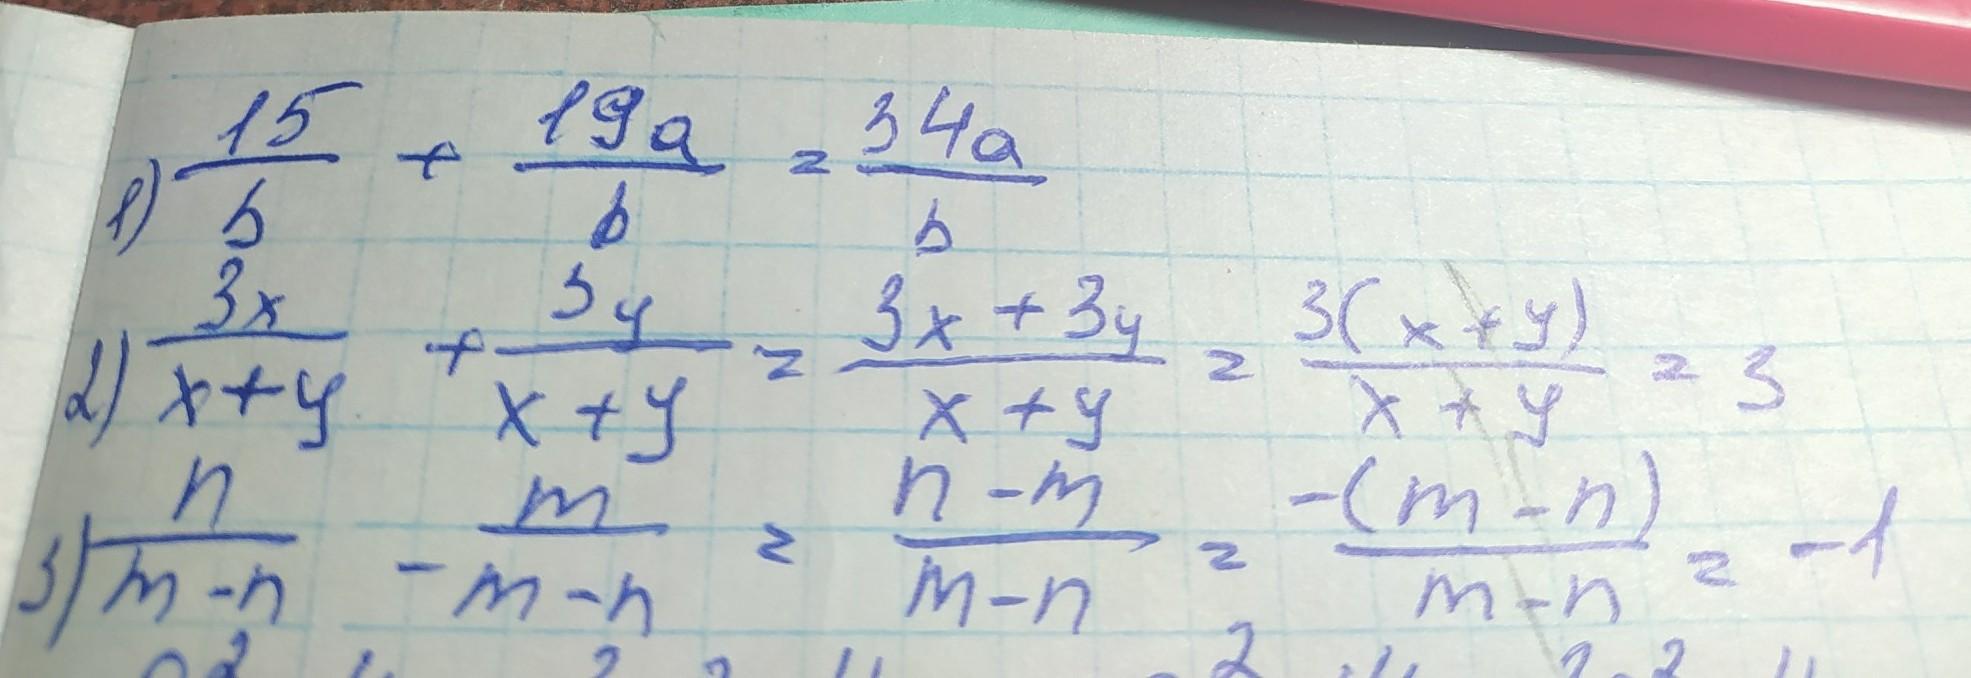 1) 15/b + 19a/b = 34a/b
2) 3x/(x+y) + 3y/(x+y) = (3x+3y)/(x+y) = 3(x+y)/(x+y) = 3
3) n/(m-n) - m/(m-n) = (n-m)/(m-n) = -(m-n)/(m-n) = -1